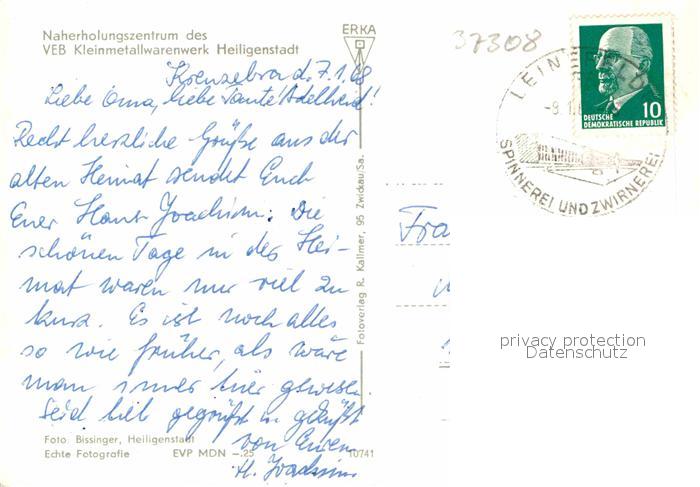 Naherholungszentrum des
VEB Kleinmetallwarenwerk Heiligenstadt
ERKA
37308
Krenzebra d. 7.1.68
Liebe Oma, liebe Tante Adelheid!
Recht herzliche Grüße aus der
alten Heimat sendet Euch
Euer Hans Joachim. Die
schönen Tage in der Hei-
mat waren nur viel zu
kurz. Es ist noch alles
so wie früher, als wäre
man immer hier gewesen.
Seid lieb gegrüßt u. geküßt
von Euren
H. Joachim
Foto. Bissinger, Heiligenstadt
Echte Fotografie EVP MDN -.25 10741
Fotoverlag R. Kallmer, 95 Zwickau/Sa.
LEINEFELDE
-9.1.6
SPINNEREI UND ZWIRNEREI
10
DEUTSCHE
DEMOKRATISCHE REPUBLIK
Fra
privacy protection
Datenschutz